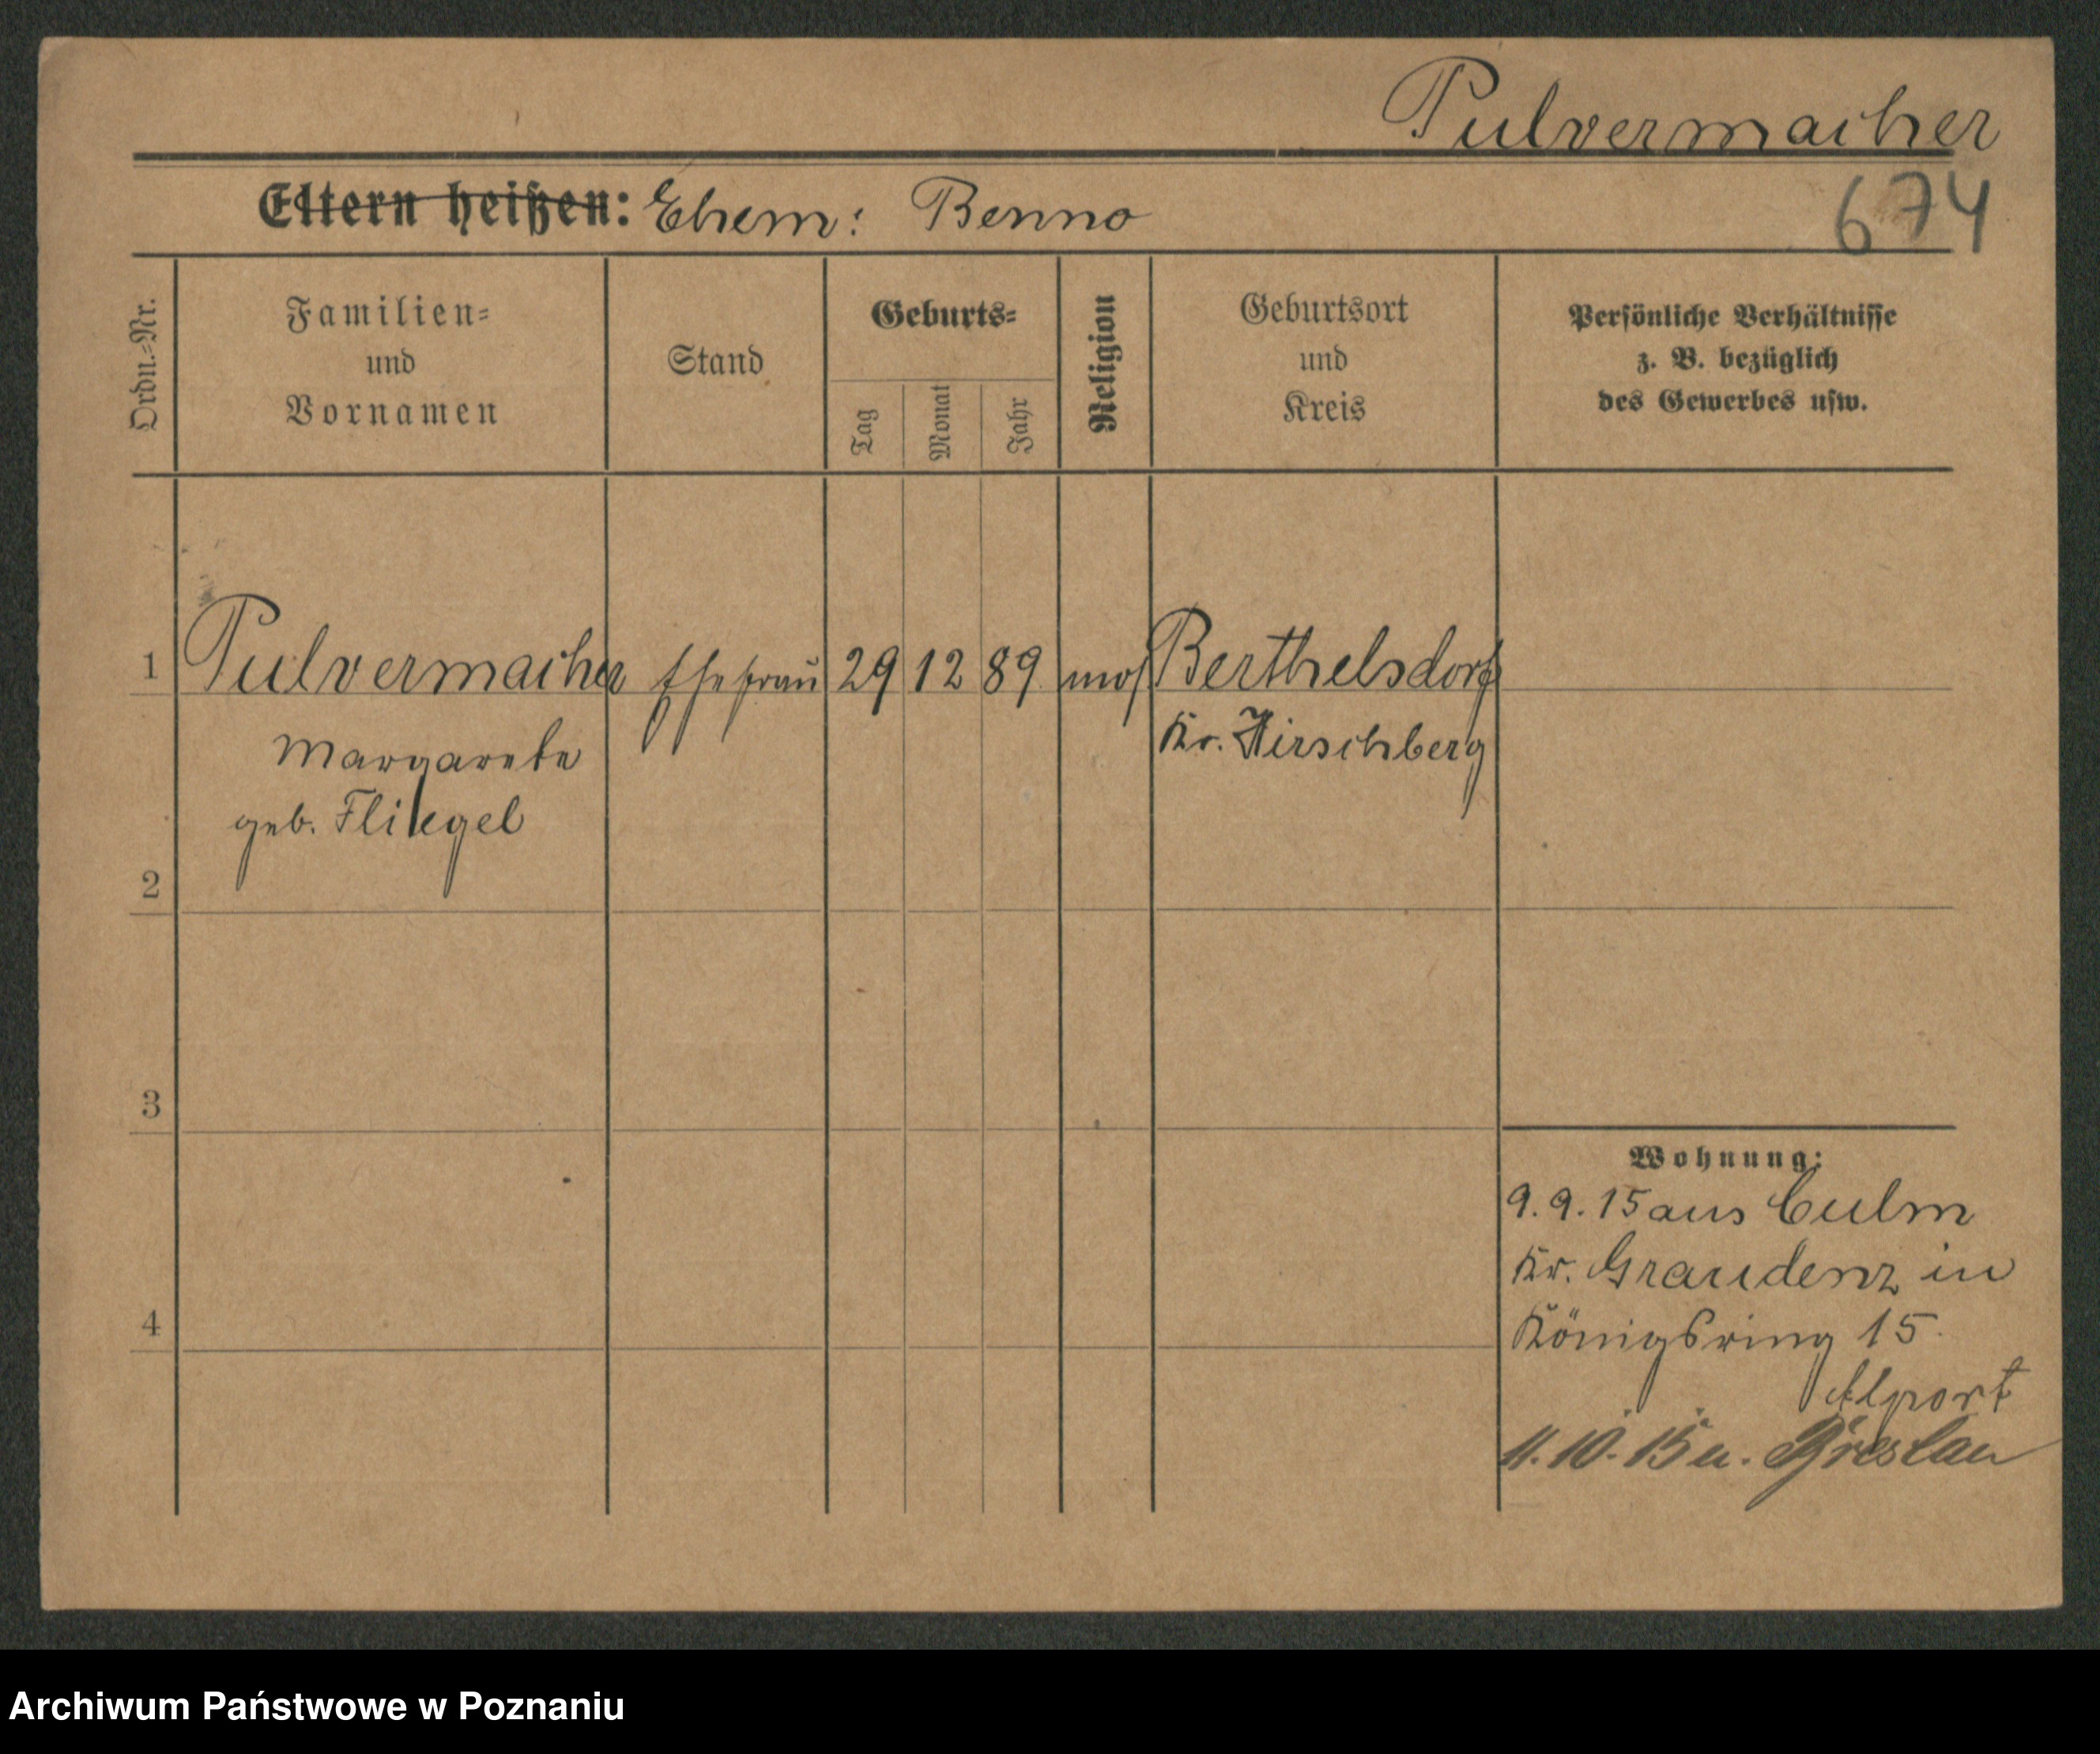 Pulvermacher
Eltern heißen: Ehem: Benno
674
Ordn.-Nr.
Familien-
und
Vornamen
Stand
Geburts-
Tag
Monat
Jahr
Religion
Geburtsort
und
Kreis
Persönliche Verhältnisse
z. B. bezüglich
des Gewerbes usw.
1 Pulvermacher Ehefrau 29 12 89 mos Berthelsdorf
Margarete Kr. Hirschberg
geb. Fliegel
2
3
Wohnung:
9.9.15 aus Culm
Kr. Graudenz in
Königsring 15.
4
Alport
11.10.15 n. Breslau
Archiwum Państwowe w Poznaniu